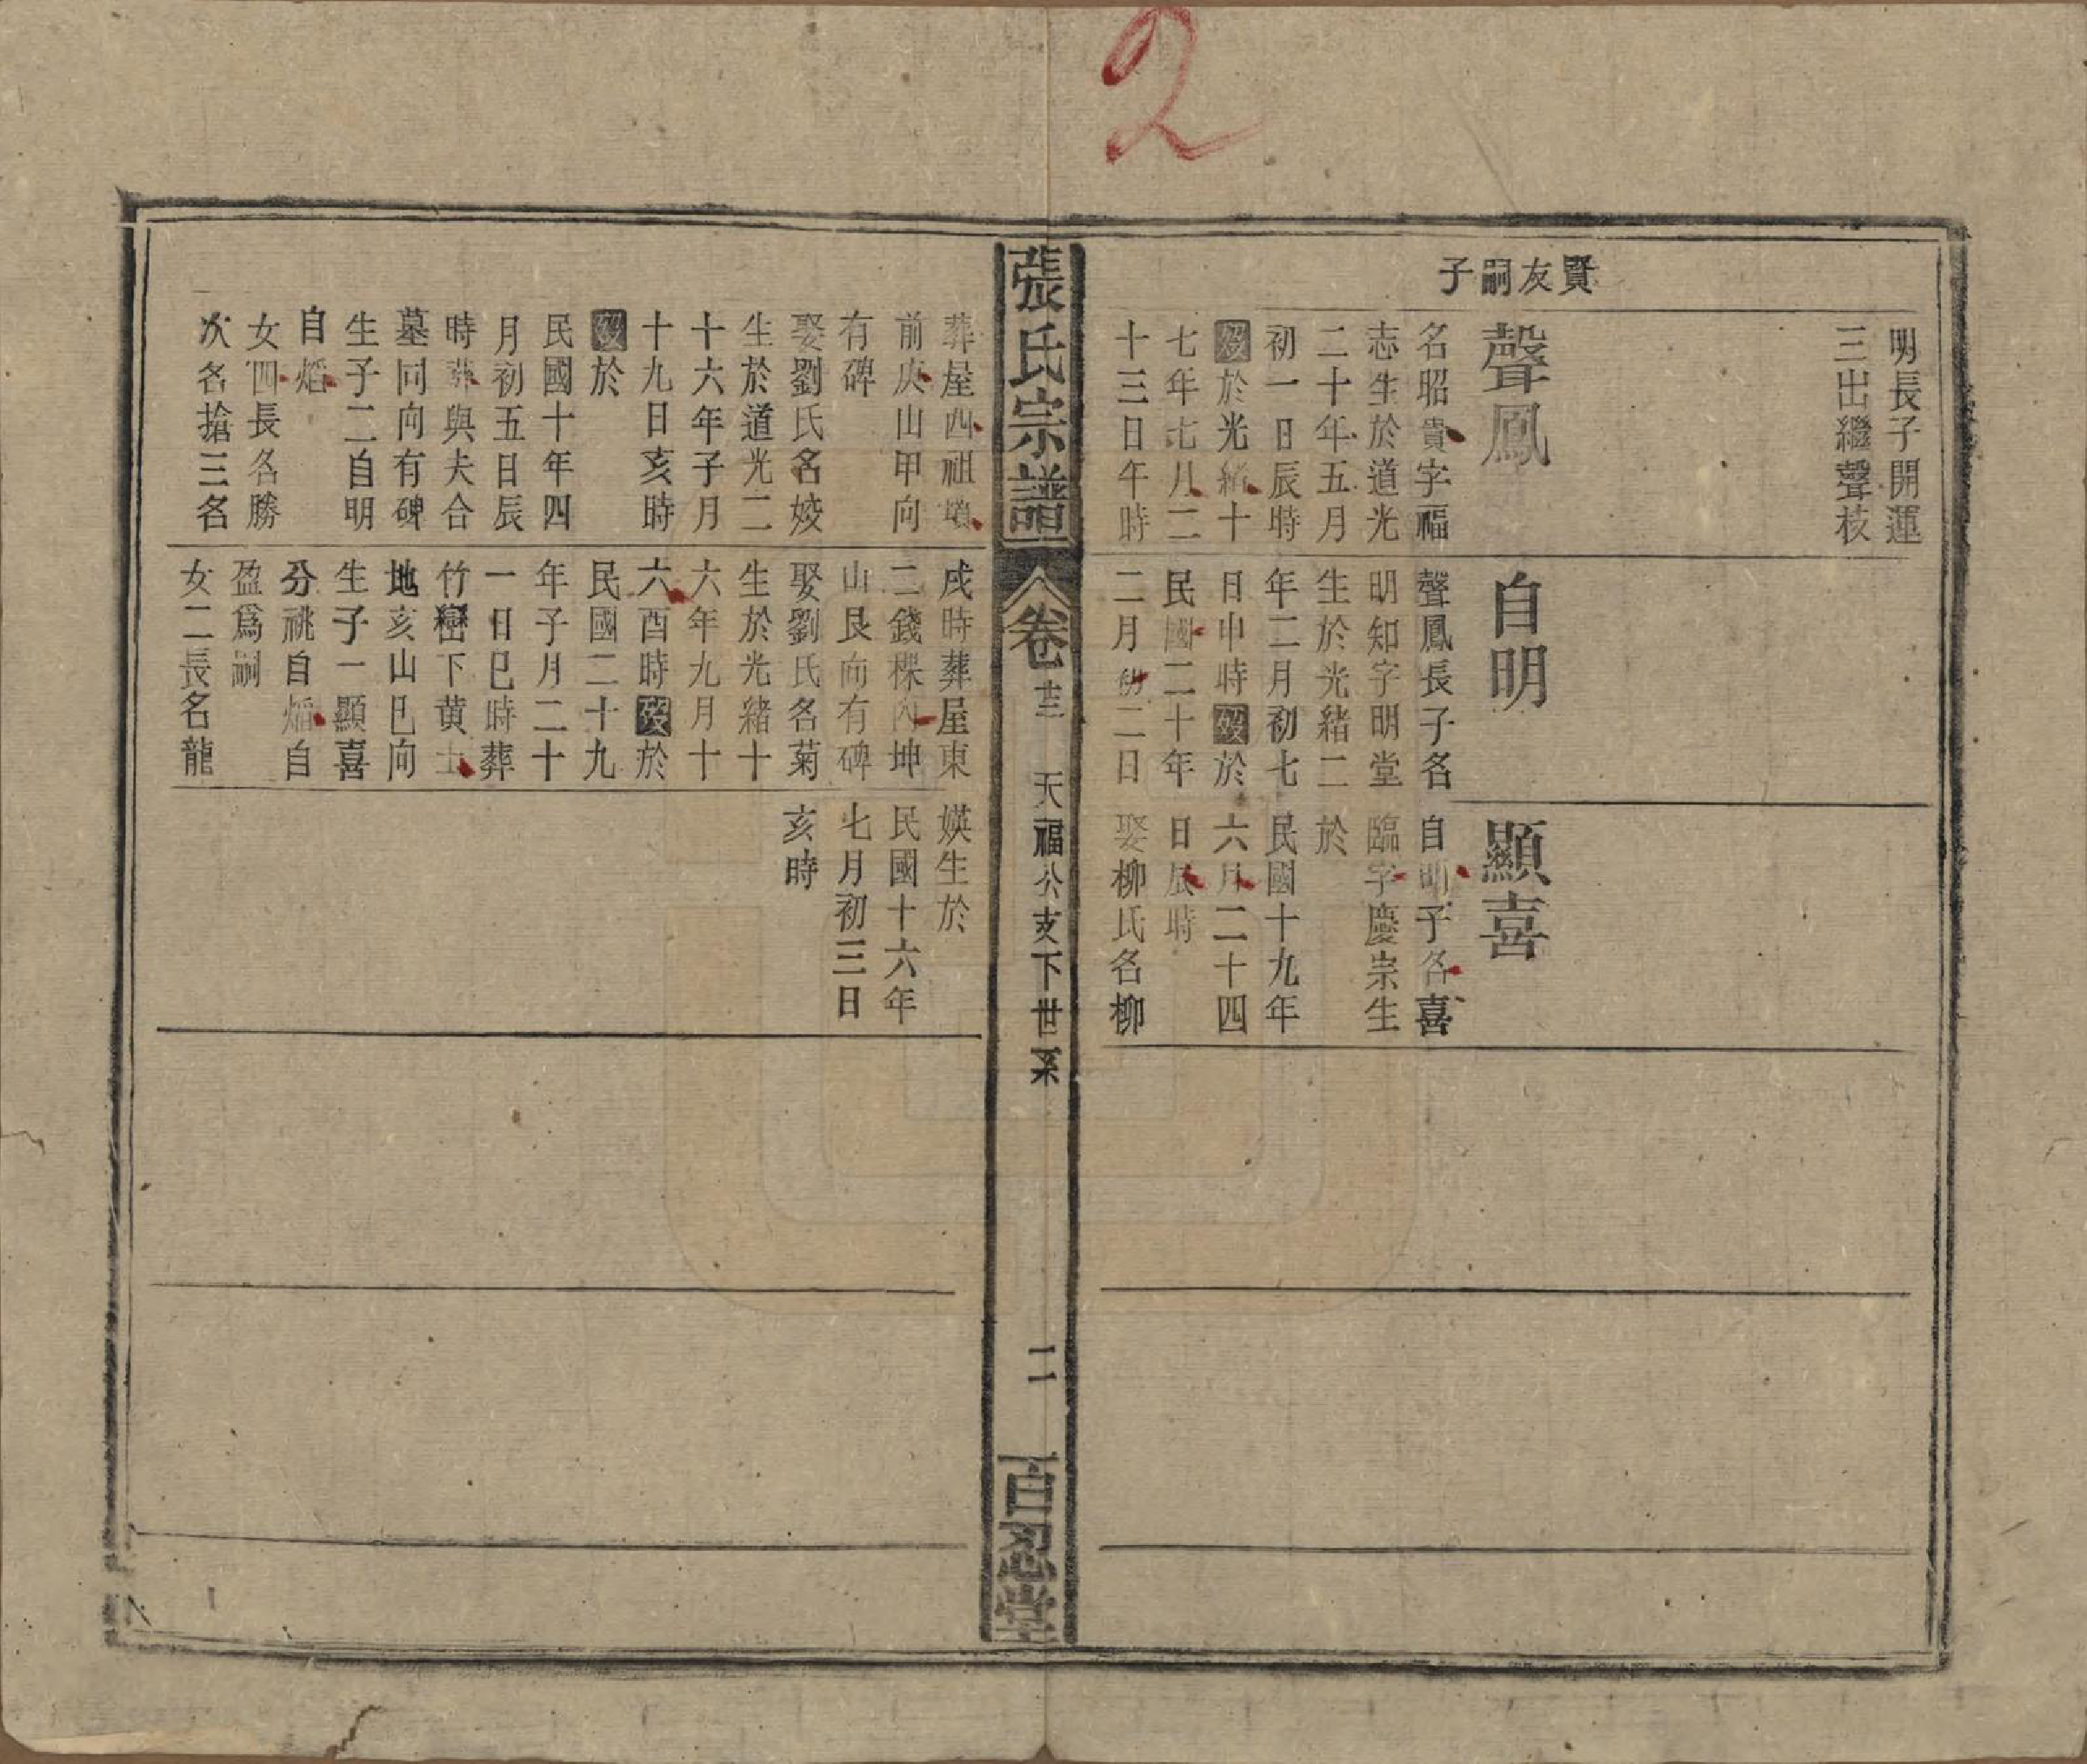 2
賢友嗣子
明長子開運
三出繼聲核
聲鳳
名昭貴字福
志生於道光
二十年五月
初一日辰時
歿於光緒十
七年七月二
十三日午時
自明
聲鳳長子名
明知字明堂
生於光緒二
年二月初七
日申時歿於
民國二十年
二月初二日
顯喜
自明子名喜
臨字慶崇生
於
民國十九年
六月二十四
日辰時
娶柳氏名柳
張氏宗譜
卷十三
天福公支下世系
二
百忍堂
葬屋西祖墳
前庚山甲向
有碑
娶劉氏名姣
生於道光二
十六年子月
十九日亥時
歿於
民國十年四
月初五日辰
時葬與夫合
墓同向有碑
生子二自明
自熖
女四長名勝
次名搶三名
戌時葬屋東
二錢樑內坤
山艮向有碑
娶劉氏名菊
生於光緒十
六年九月十
六酉時歿於
民國二十九
年子月二十
一日巳時葬
竹巒下黄土
地亥山巳向
生子一顯喜
分祧自熖自
盈爲嗣
女二長名龍
媖生於
民國十六年
七月初三日
亥時